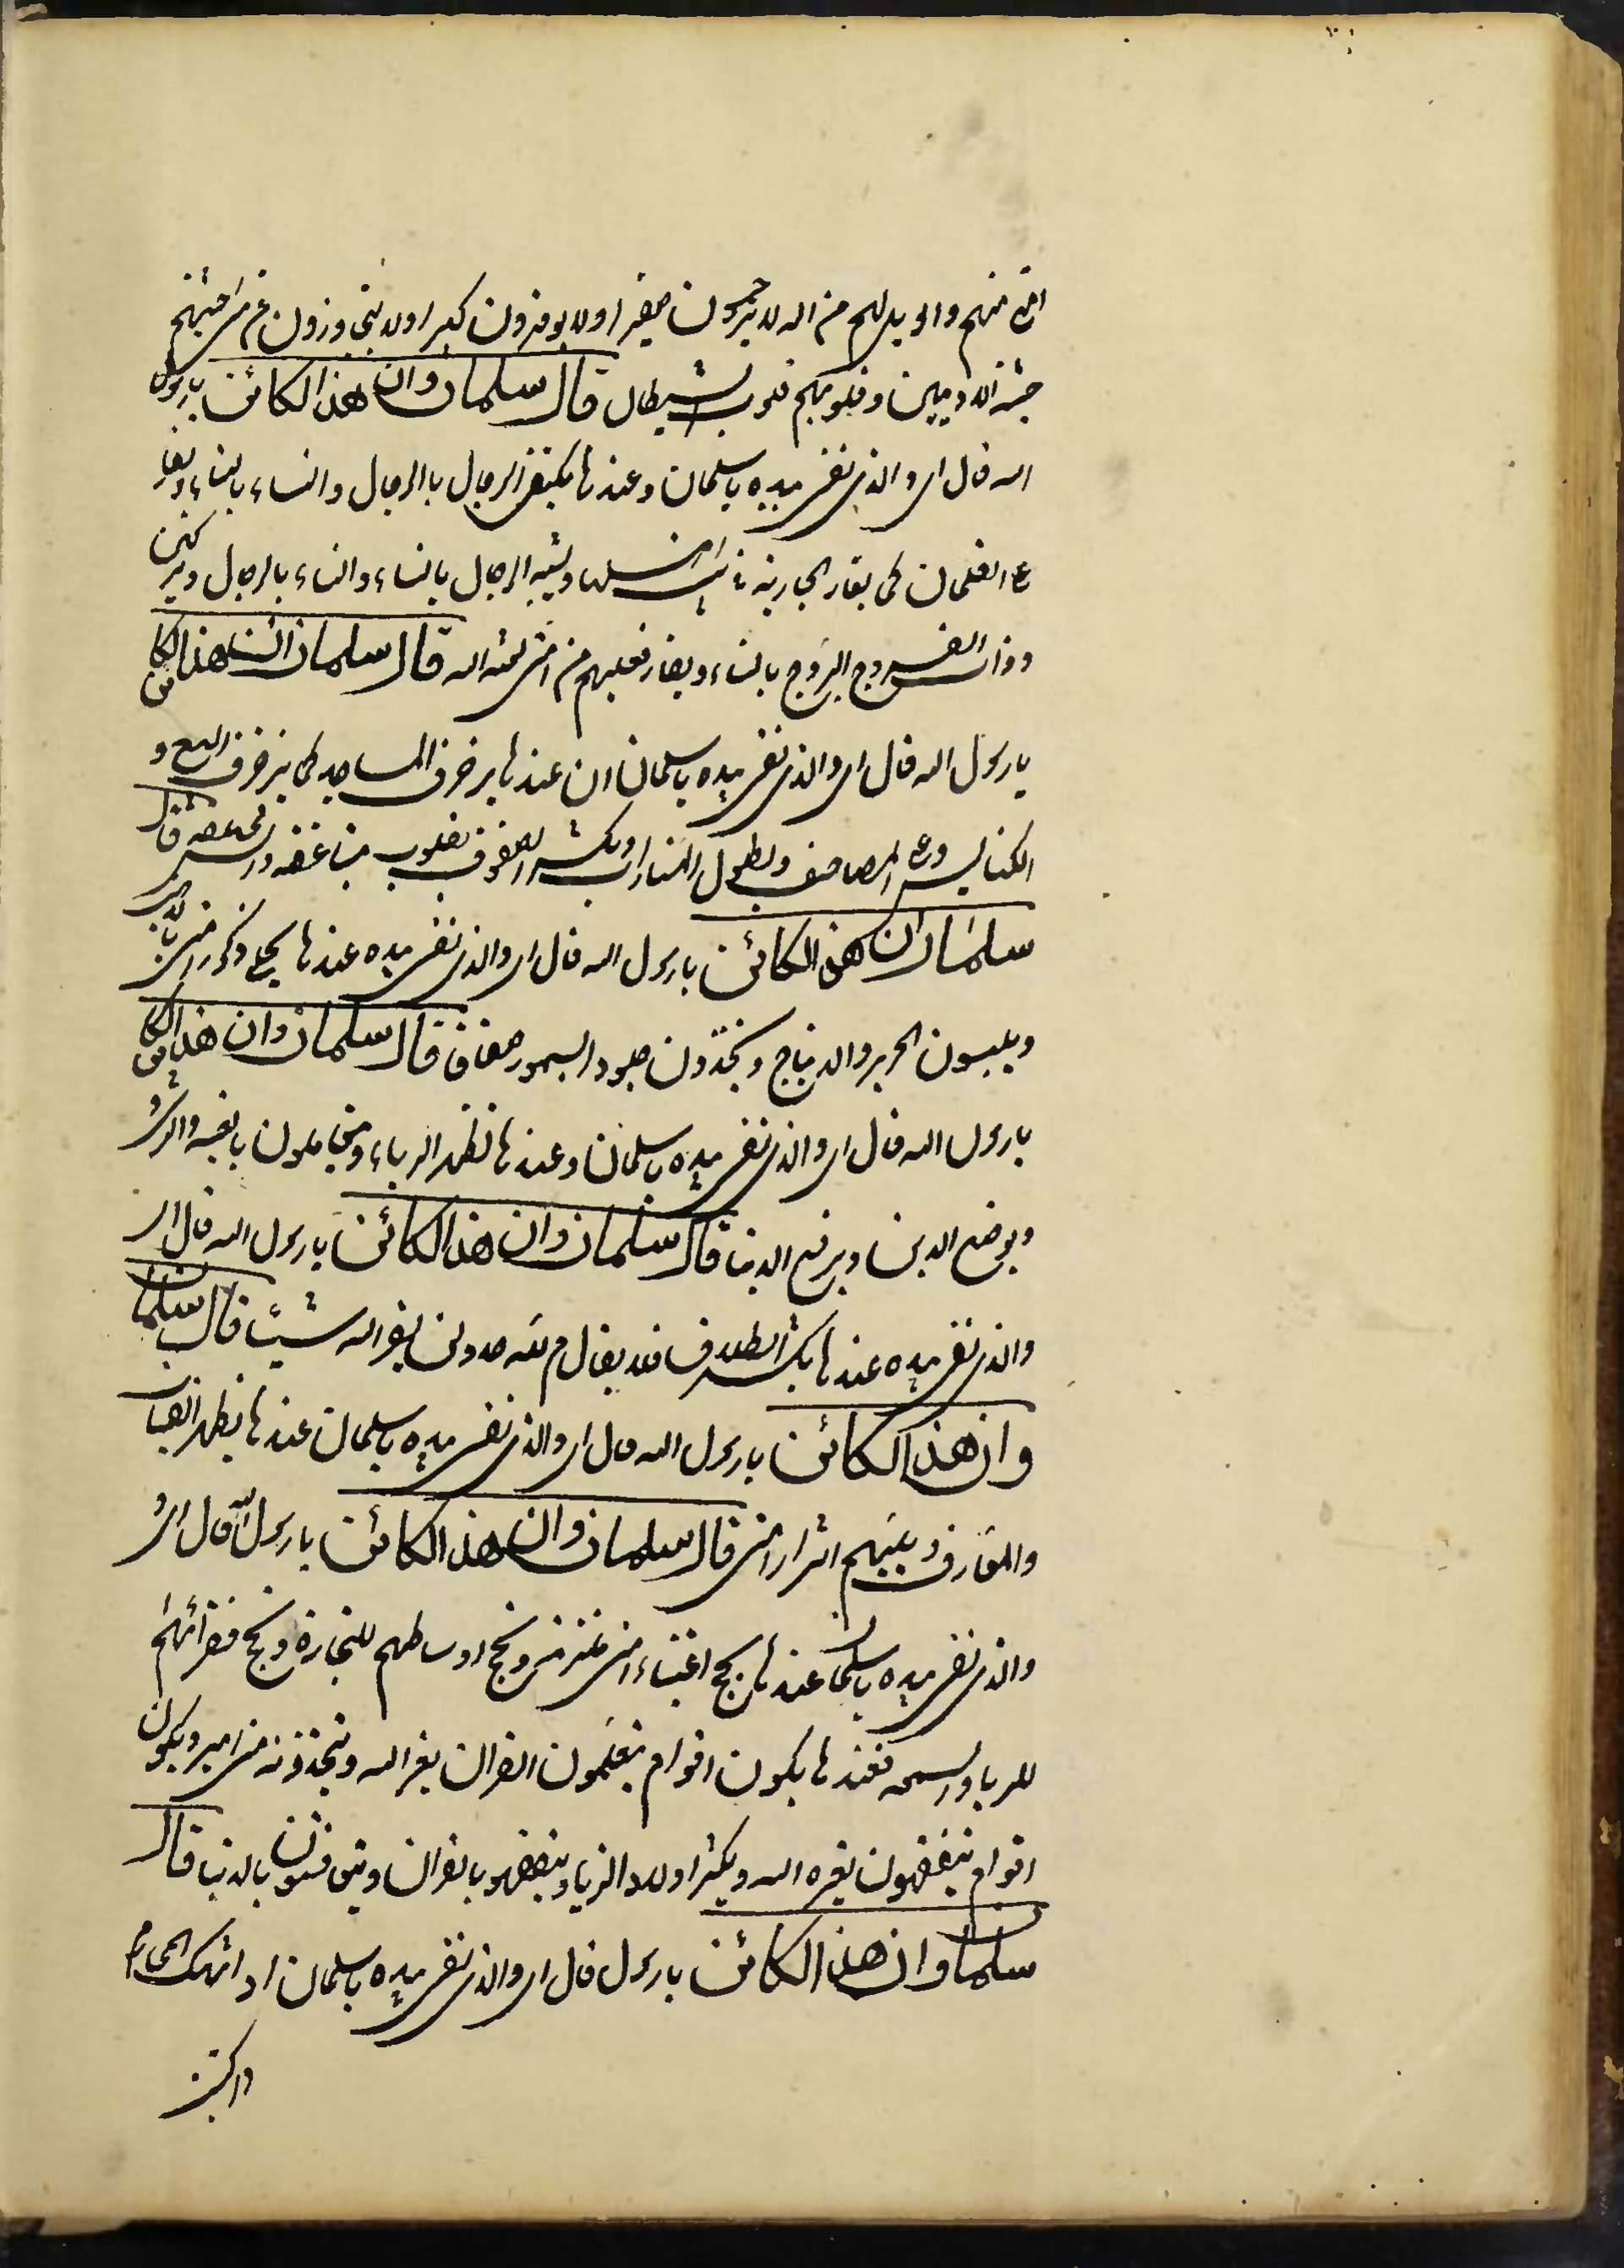 امتی منهم والویل لهم من الله لا یرحمون صغیرا ولا یوقرون کبیرا ولا یتجاوزون عن مسئ جثتهم
جثة الادمیین وقلوبهم قلوب الشیطان قال سلمان وان هذا لکائن یارسول
الله قال ای والذی نفسی بیده یا سلمان وعندها یکتفی الرجال بالرجال والنساء بالنساء ویغار
علی الغلمان کما یغار الجاریة فی بیت اهلها ویشبه الرجال بالنساء والنساء بالرجال ویرکبن
ذوات الفروج السروج بالنساء فعلیهم من امتی لعنة الله قال سلمان ان هذا لکائن
یا رسول الله قال ای والذی نفسی بیده یا سلمان ان عندها یزخرف المساجد کما یزخرف البیع و
الکنایس ویحلی المصاحف ویطول المنارات ویکثر الصفوف بقلوب متباغضه والسن مختلفه قال
سلمان ان هذا لکائن یا رسول الله قال ای والذی نفسی بیده عندها یحلی ذکور امتی بالذهب
ویلبسون الحریر والدیباج ویتخذون جلود النمور صفاقا قال سلمان وان هذا لکائن
یا رسول الله قال ای والذی نفسی بیده یا سلمان وعندها تظهر الرباء ویتعاملون بالعینه والرشی
ویوضع الدین ویرفع الدنیا قال سلمان وان هذا لکائن یا رسول الله قال ای
والذی نفسی بیده عندها یکثر الطلاق فلا یقام لله حد ولن یضر الله شیئا قال سلمان
وان هذا لکائن یا رسول الله قال ای والذی نفسی بیده یا سلمان عندها یظهر القینات
والمعازف ویلیهم اشرار امتی قال سلمان وان هذا لکائن یا رسول الله قال ای
والذی نفسی بیده یا سلمان عندها یحج اغنیاء امتی للنزهة ویحج اوساطهم للتجارة ویحج فقرائهم
للریا والسمعه فعندها یکون اقوام یتعلمون القران لغیر الله ویتخذونه مزامیر ویکون
اقوام یتفقهون لغیر الله ویکثر اولاد الزنا ویتغنون بالقران ویتهافتون بالدنیا قال
سلمان وان هذا لکائن یا رسول قال ای والذی نفسی بیده یا سلمان اذا انتهک المحارم
واکتسب